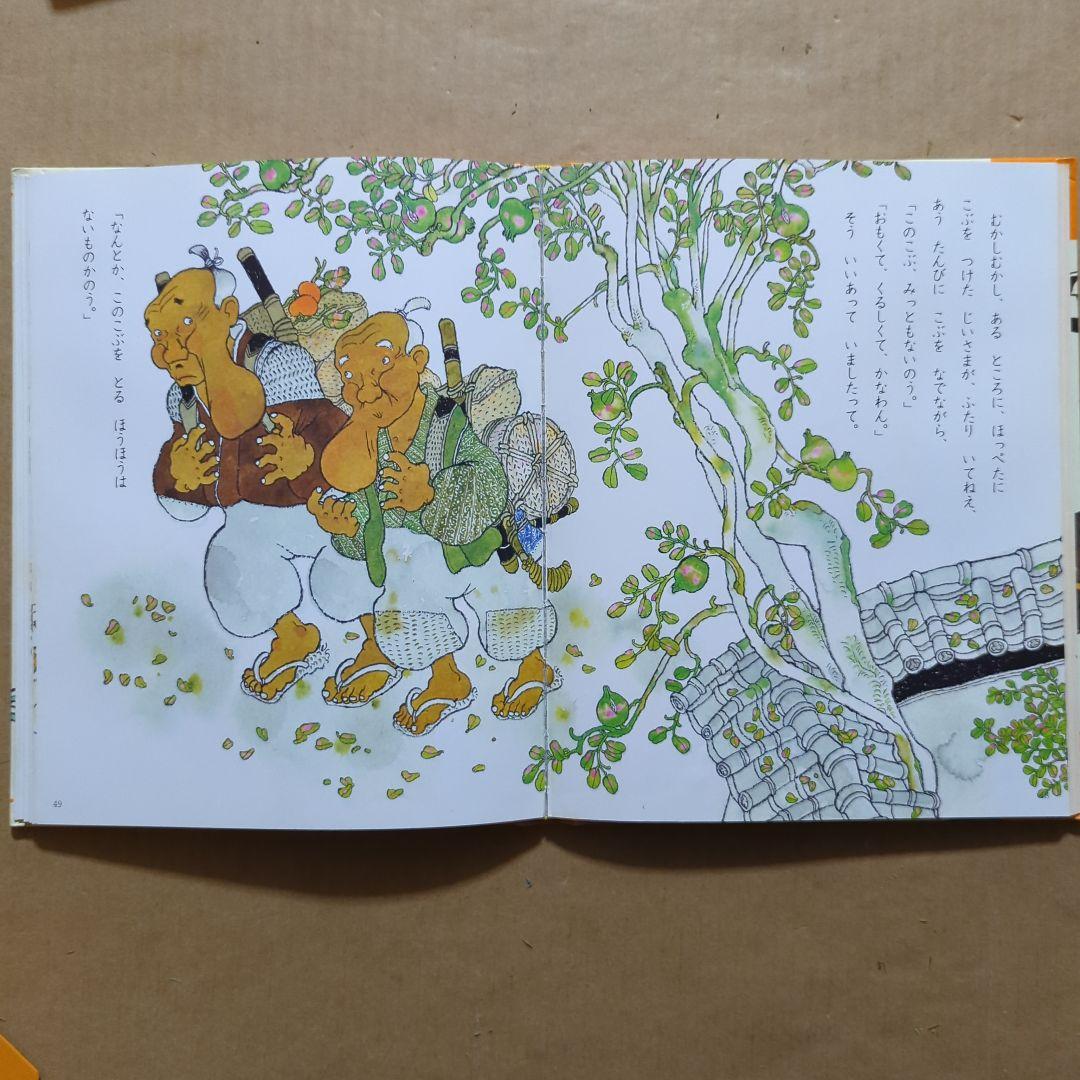 むかしむかし、ある ところに、ほっぺたに
こぶを つけた じいさまが、ふたり いてねえ、
あう たんびに こぶを なでながら、
「このこぶ、みっともないのう。」
「おもくて、くるしくて、かなわん。」
そう いいあって いましたって。
「なんとか、このこぶを とる ほうほうは
ないものかのう。」
49